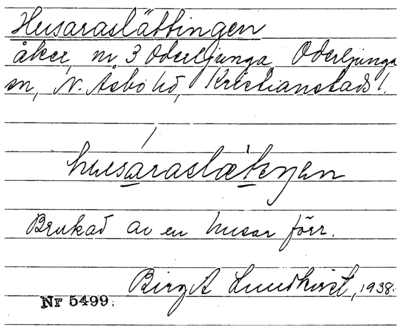 Husaraslättingen
åker, nr 3 Oderljunga, Oderljunga
sn, N. Åsbo hd, Kristianstads l.
husaraslætɩŋən
Brukad av en husar förr.
Birg A Lundkvist, 1938.
Nr 5499.